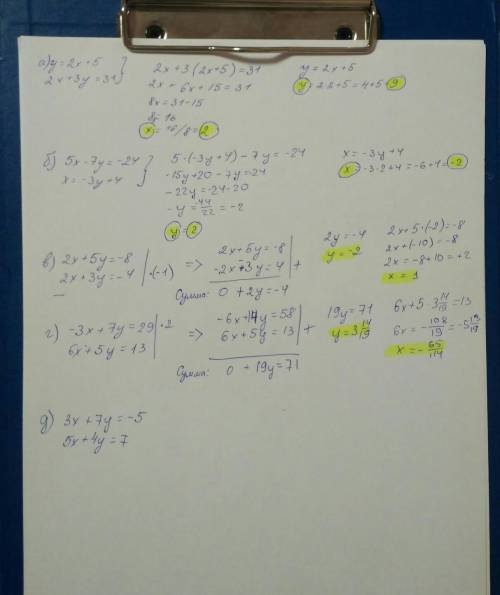 а) y = 2x + 5
2x + 3y = 31
2x + 3(2x+5) = 31
2x + 6x + 15 = 31
8x = 31 - 15
8x = 16
x = 16/8 = 2
y = 2x + 5
y = 2·2+5 = 4+5 = 9
б) 5x - 7y = -24
x = -3y + 4
5·(-3y+4) - 7y = -24
-15y + 20 - 7y = 24
-22y = -24-20
-y = 44/22 = -2
y = 2
x = -3y + 4
x = -3·2+4 = -6+4 = -2
в) 2x + 5y = -8
2x + 3y = -4 | ·(-1)
=> 2x + 5y = -8
-2x - 3y = 4 | +
Сумма: 0 + 2y = -4
2y = -4
y = -2
2x + 5·(-2) = -8
2x + (-10) = -8
2x = -8 + 10 = +2
x = 1
г) -3x + 7y = 29 | ·2
6x + 5y = 13
=> -6x + 14y = 58
6x + 5y = 13 | +
Сумма: 0 + 19y = 71
19y = 71
y = 3 14/19
6x + 5·3 14/19 = 13
6x = - 108/19 = -5 13/19
x = - 65/114
д) 3x + 7y = -5
5x + 4y = 7